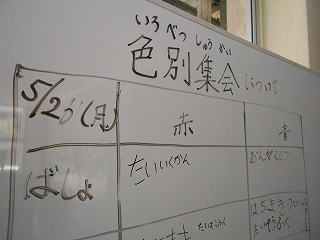 いろべつ しゅう かい
色別集会について
5/20(月) 赤 青
ばしょ たいいくかん おんがくしつ
はちまき
たいそうふく